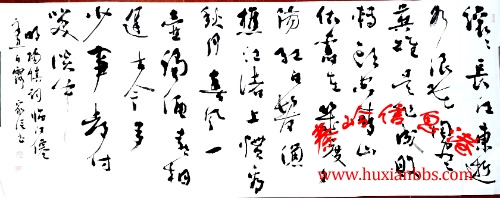 滚々长江东逝
水浪花淘尽
英雄是非成败
转头空青山
依旧在几度夕
阳红白发渔
樵江渚上惯看
秋月春风一
壶浊酒喜相
逢古今多
少事都付
笑谈中
明杨慎词临江仙
白露
www.huxianbbs.com